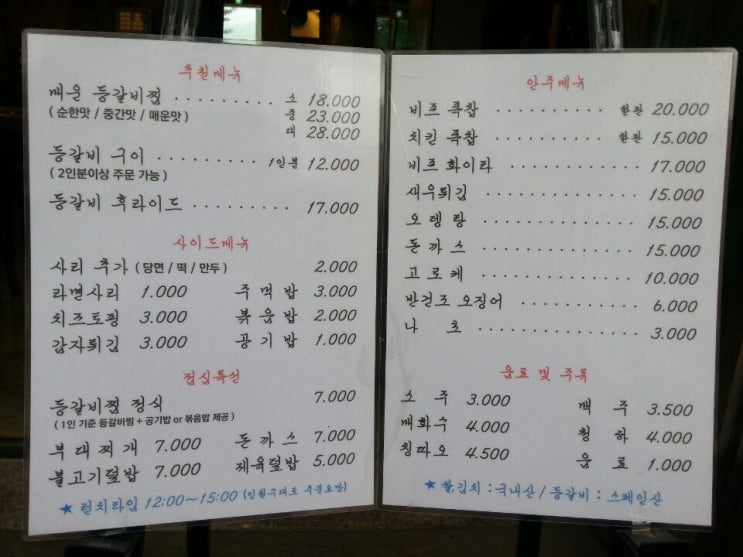 추천메뉴
매운 등갈비찜 ········· 소 18.000
(순한맛 / 중간맛 / 매운맛) 중 23.000
대 28.000
등갈비 구이 ········· 1인분 12.000
(2인분이상 주문 가능)
등갈비 후라이드 ········· 17.000
사이드메뉴
사리 추가 (당면 / 떡 / 만두) 2.000
라면사리 1.000 주먹밥 3.000
치즈토핑 3.000 볶음밥 2.000
감자튀김 3.000 공기밥 1.000
점심특선
등갈비찜 정식 7.000
(1인 기준 등갈비찜 + 공기밥 or 볶음밥 제공)
부대찌개 7.000 돈까스 7.000
불고기덮밥 7.000 제육덮밥 5.000
★ 런치타임 12:00~15:00 (인원수대로 주문요망)
안주메뉴
비프 폭찹 ··········· 한판 20.000
치킨 폭찹 ··········· 한판 15.000
비프 화이타 ··········· 17.000
새우튀김 ··········· 15.000
오뎅탕 ··········· 15.000
돈까스 ··········· 15.000
고로케 ··········· 10.000
반건조 오징어 ··········· 6.000
나초 ··········· 3.000
음료 및 주류
소주 3.000 맥주 3.500
매화수 4.000 청하 4.000
칭따오 4.500 음료 1.000
★ 쌀,김치 : 국내산 / 등갈비 : 스페인산